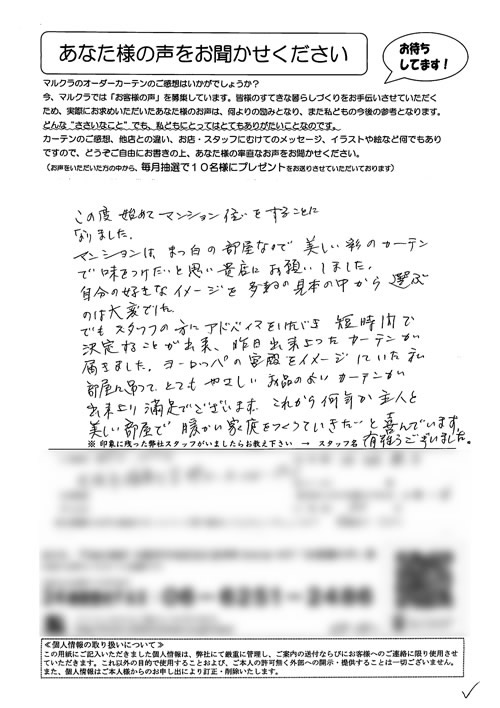 あなた様の声をお聞かせください
お待ち
してます！
マルクラのオーダーカーテンのご感想はいかがでしょうか？
今、マルクラでは「お客様の声」を募集しています。皆様のすてきな暮らしづくりをお手伝いさせていただく
ため、実際にお求めいただいたあなた様のお声は、何よりの励みとなり、また私どもの今後の参考となります。
どんな“ささいなこと”でも、私どもにとってはとてもありがたいことなのです。
カーテンのご感想、他店との違い、お店・スタッフにむけてのメッセージ、イラストや絵など何でもあり
ですので、どうぞご自由にお書きの上、あなた様の率直なお声をお聞かせください。
（お声をいただいた方の中から、毎月抽選で１０名様にプレゼントをお送りさせていただいております）
この度 始めて マンション住いをすることに
なりました。
マンションは まっ白の部屋なので 美しい彩のカーテン
で味をつけたいと思い 貴店に お願いしました。
自分の好きなイメージを 多数の見本の中から 選ぶ
のは大変でした。
でも スタッフの方に アドバイスをいただき 短時間で
決定することが出来、昨日出来上ったカーテンが
届きました。ヨーロッパの宮殿をイメージしていた私
部屋に吊って とても やさしい お品のよい カーテンが
出来上り 満足でございます。これから何年か主人と
美しい部屋で 暖かい家庭をつくっていきたいと喜んでいます。
※ 印象に残った弊社スタッフがいましたらお教え下さい → スタッフ名 有難うございました。
06-6251-2486
≪個人情報の取り扱いについて≫
この用紙にご記入いただきました個人情報は、弊社にて厳重に管理し、ご案内の送付ならびにお客様へのご連絡に限り使用させ
ていただきます。これ以外の目的で使用することおよび、ご本人の許可無く外部への開示・提供することは一切ございません。
また、個人情報はご本人様からのお申し出により訂正・削除いたします。